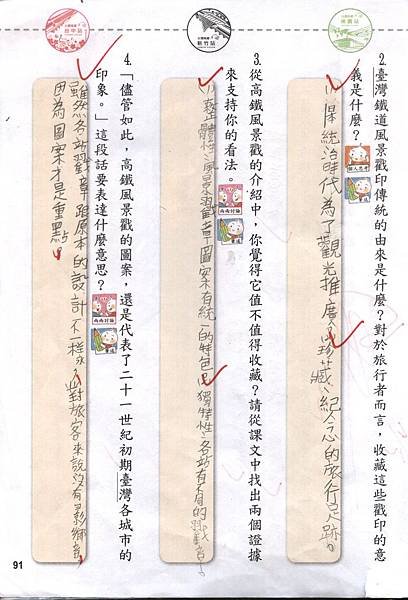 2.臺灣鐵道風景戳印傳統的由來是什麼？對於旅行者而言，收藏這些戳印的意
義是什麼？
個人思考
(1)日統治時代為了觀光推廣。(2)珍藏、紀念的旅行足跡。
3.從高鐵風景戳的介紹中，你覺得它值不值得收藏？請從課文中找出兩個證據
來支持你的看法。
兩兩討論
(1)整體性：風景戳章圖案有統一的特色。(2)獨特性：各站有不同的戳章。
4.「儘管如此，高鐵風景戳的圖案，還是代表了二十一世紀初期臺灣各城市的
印象。」這段話要表達什麼意思？
兩兩討論
雖然各站戳章跟原本的設計不一樣，對旅客來說沒有影響，
因為圖案才是重點。
台灣高鐵
台中站
台灣高鐵
新竹站
台灣高鐵
91